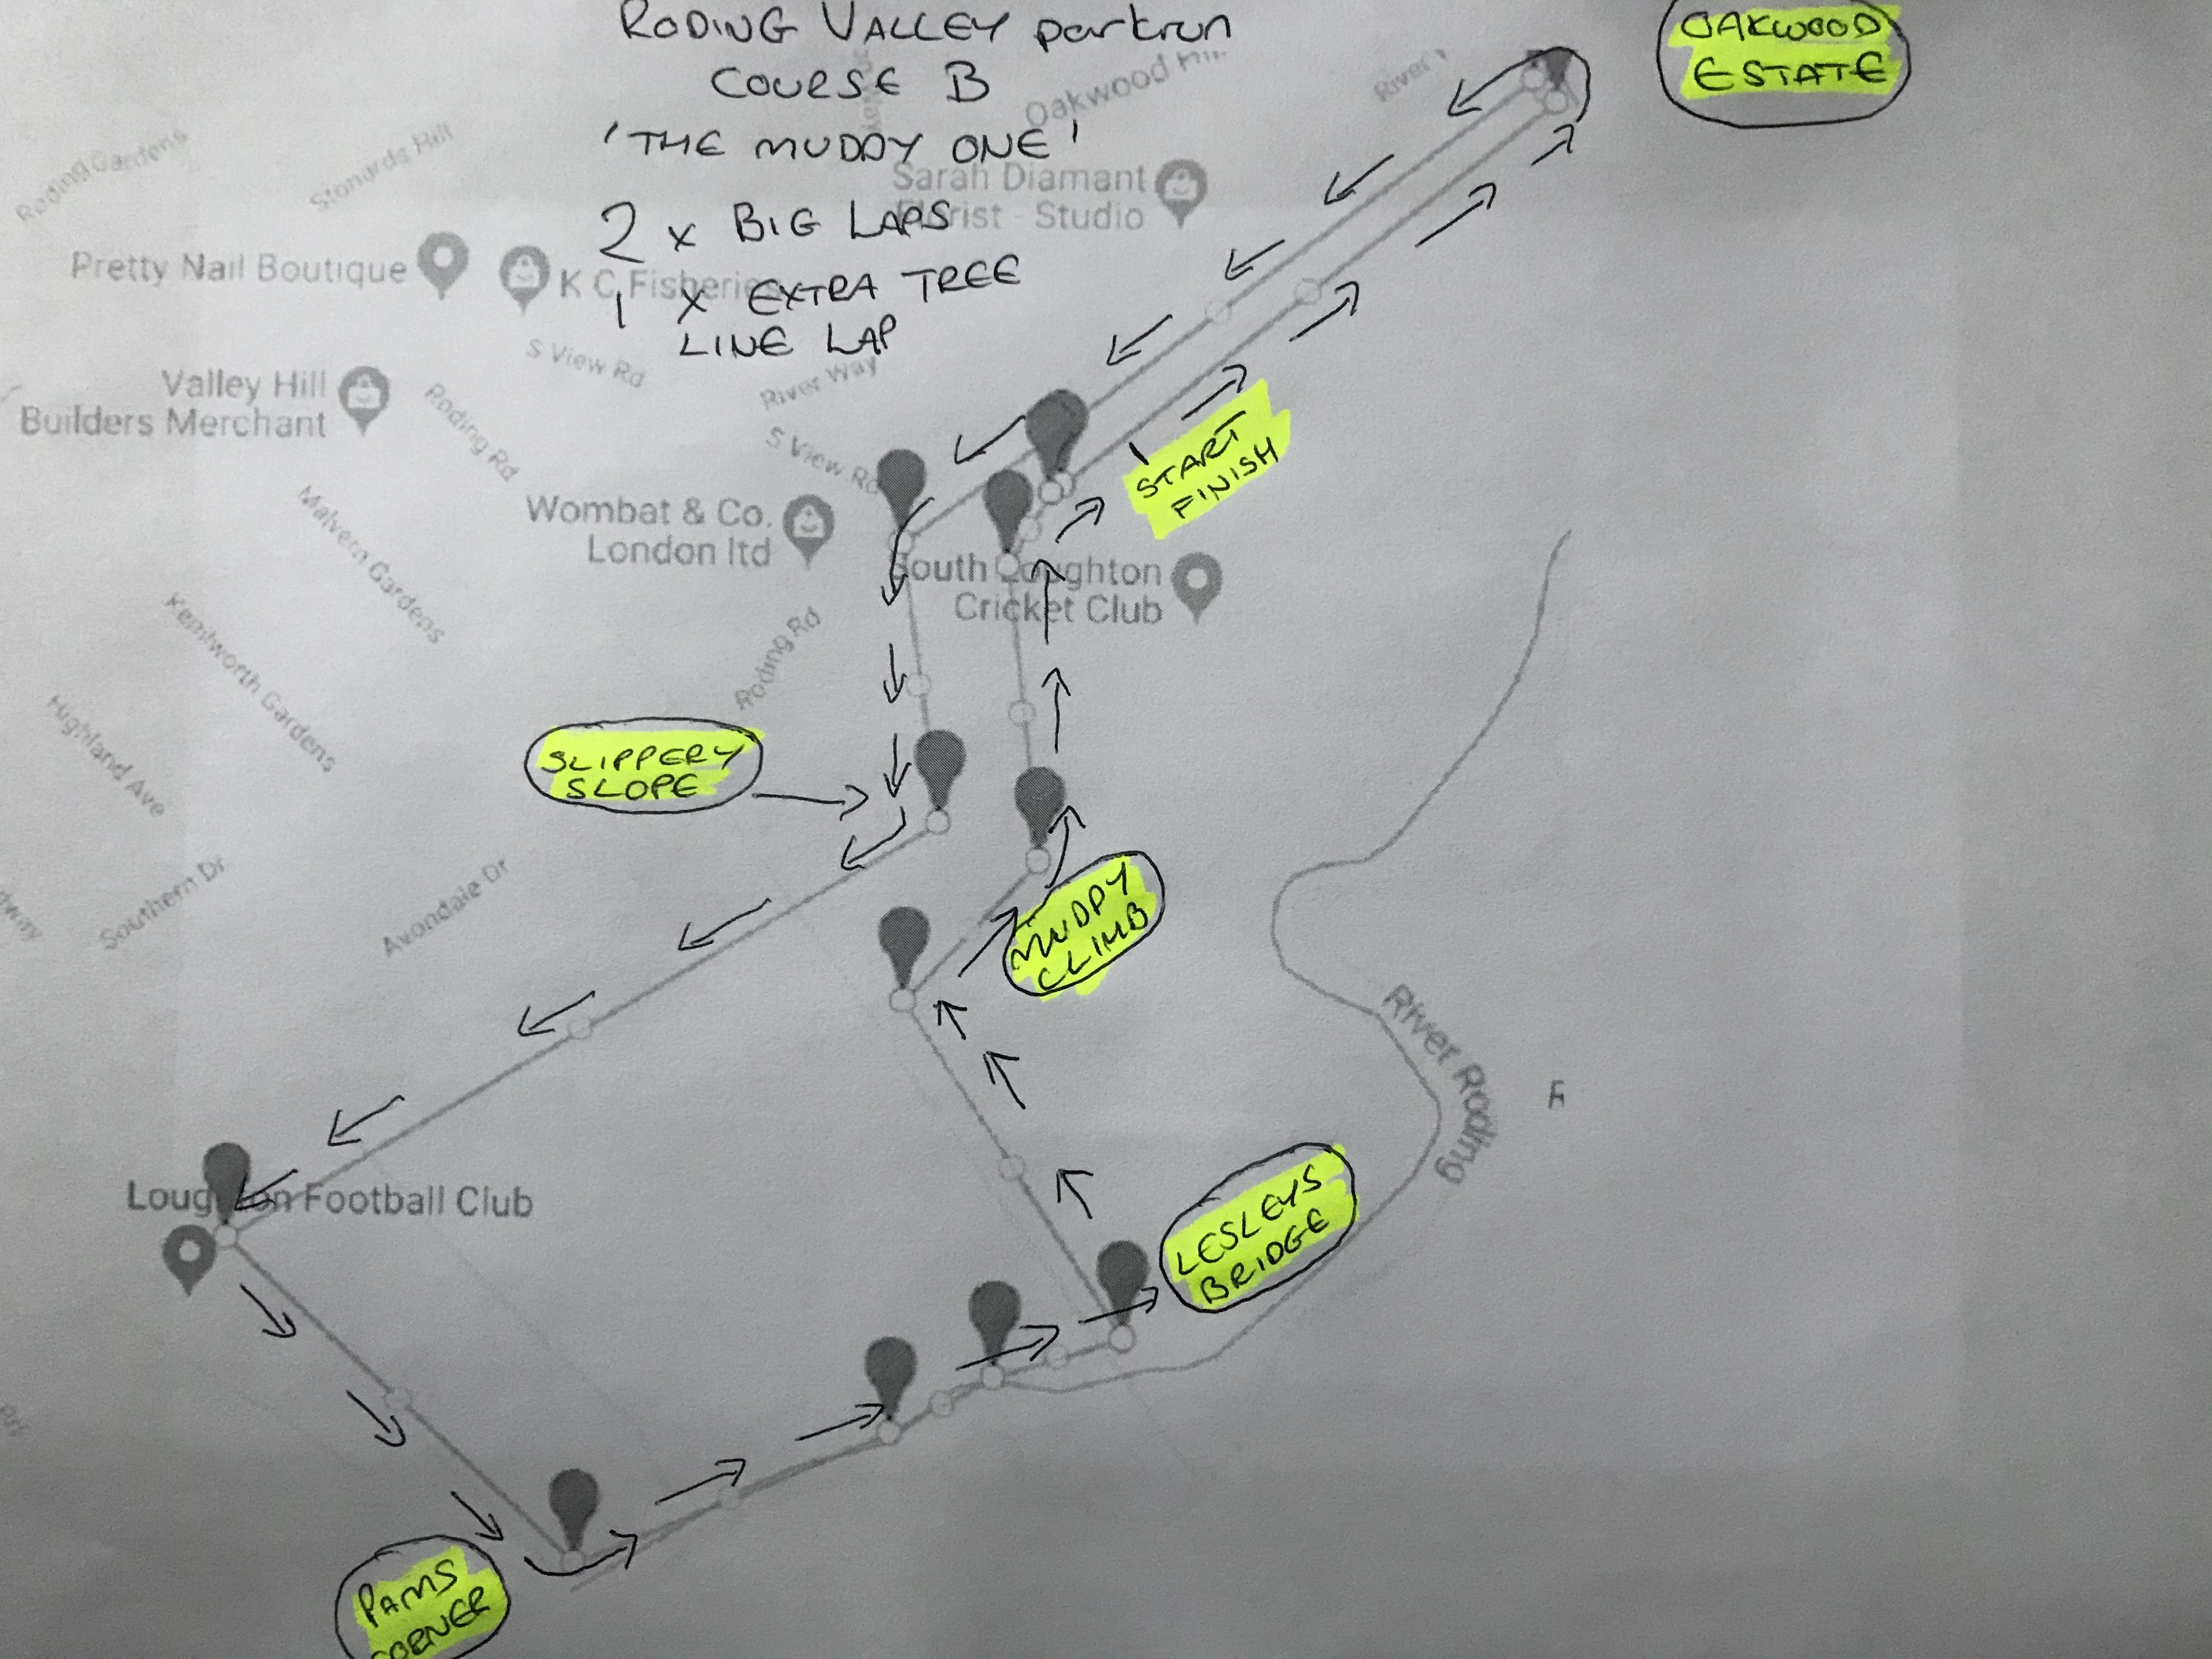 RODING VALLEY parkrun
COURSE B
'THE MUDDY ONE'
2 x BIG LAPS
1 x EXTRA TREE
LINE LAP
OAKWOOD
ESTATE
Oakwood Hill
River
Roding Gardens
Stonards Hill
Sarah Diamant
Florist - Studio
Pretty Nail Boutique
K C Fisheries
S View Rd
River Way
Valley Hill
Builders Merchant
Roding Rd
S View Rd
START
FINISH
Malvern Gardens
Wombat & Co.
London ltd
South Loughton
Cricket Club
Kenilworth Gardens
Roding Rd
Highland Ave
SLIPPERY
SLOPE
Southern Dr
Avondale Dr
MUDDY
CLIMB
River Roding
R
Loughton Football Club
LESLEYS
BRIDGE
PAMS
CORNER